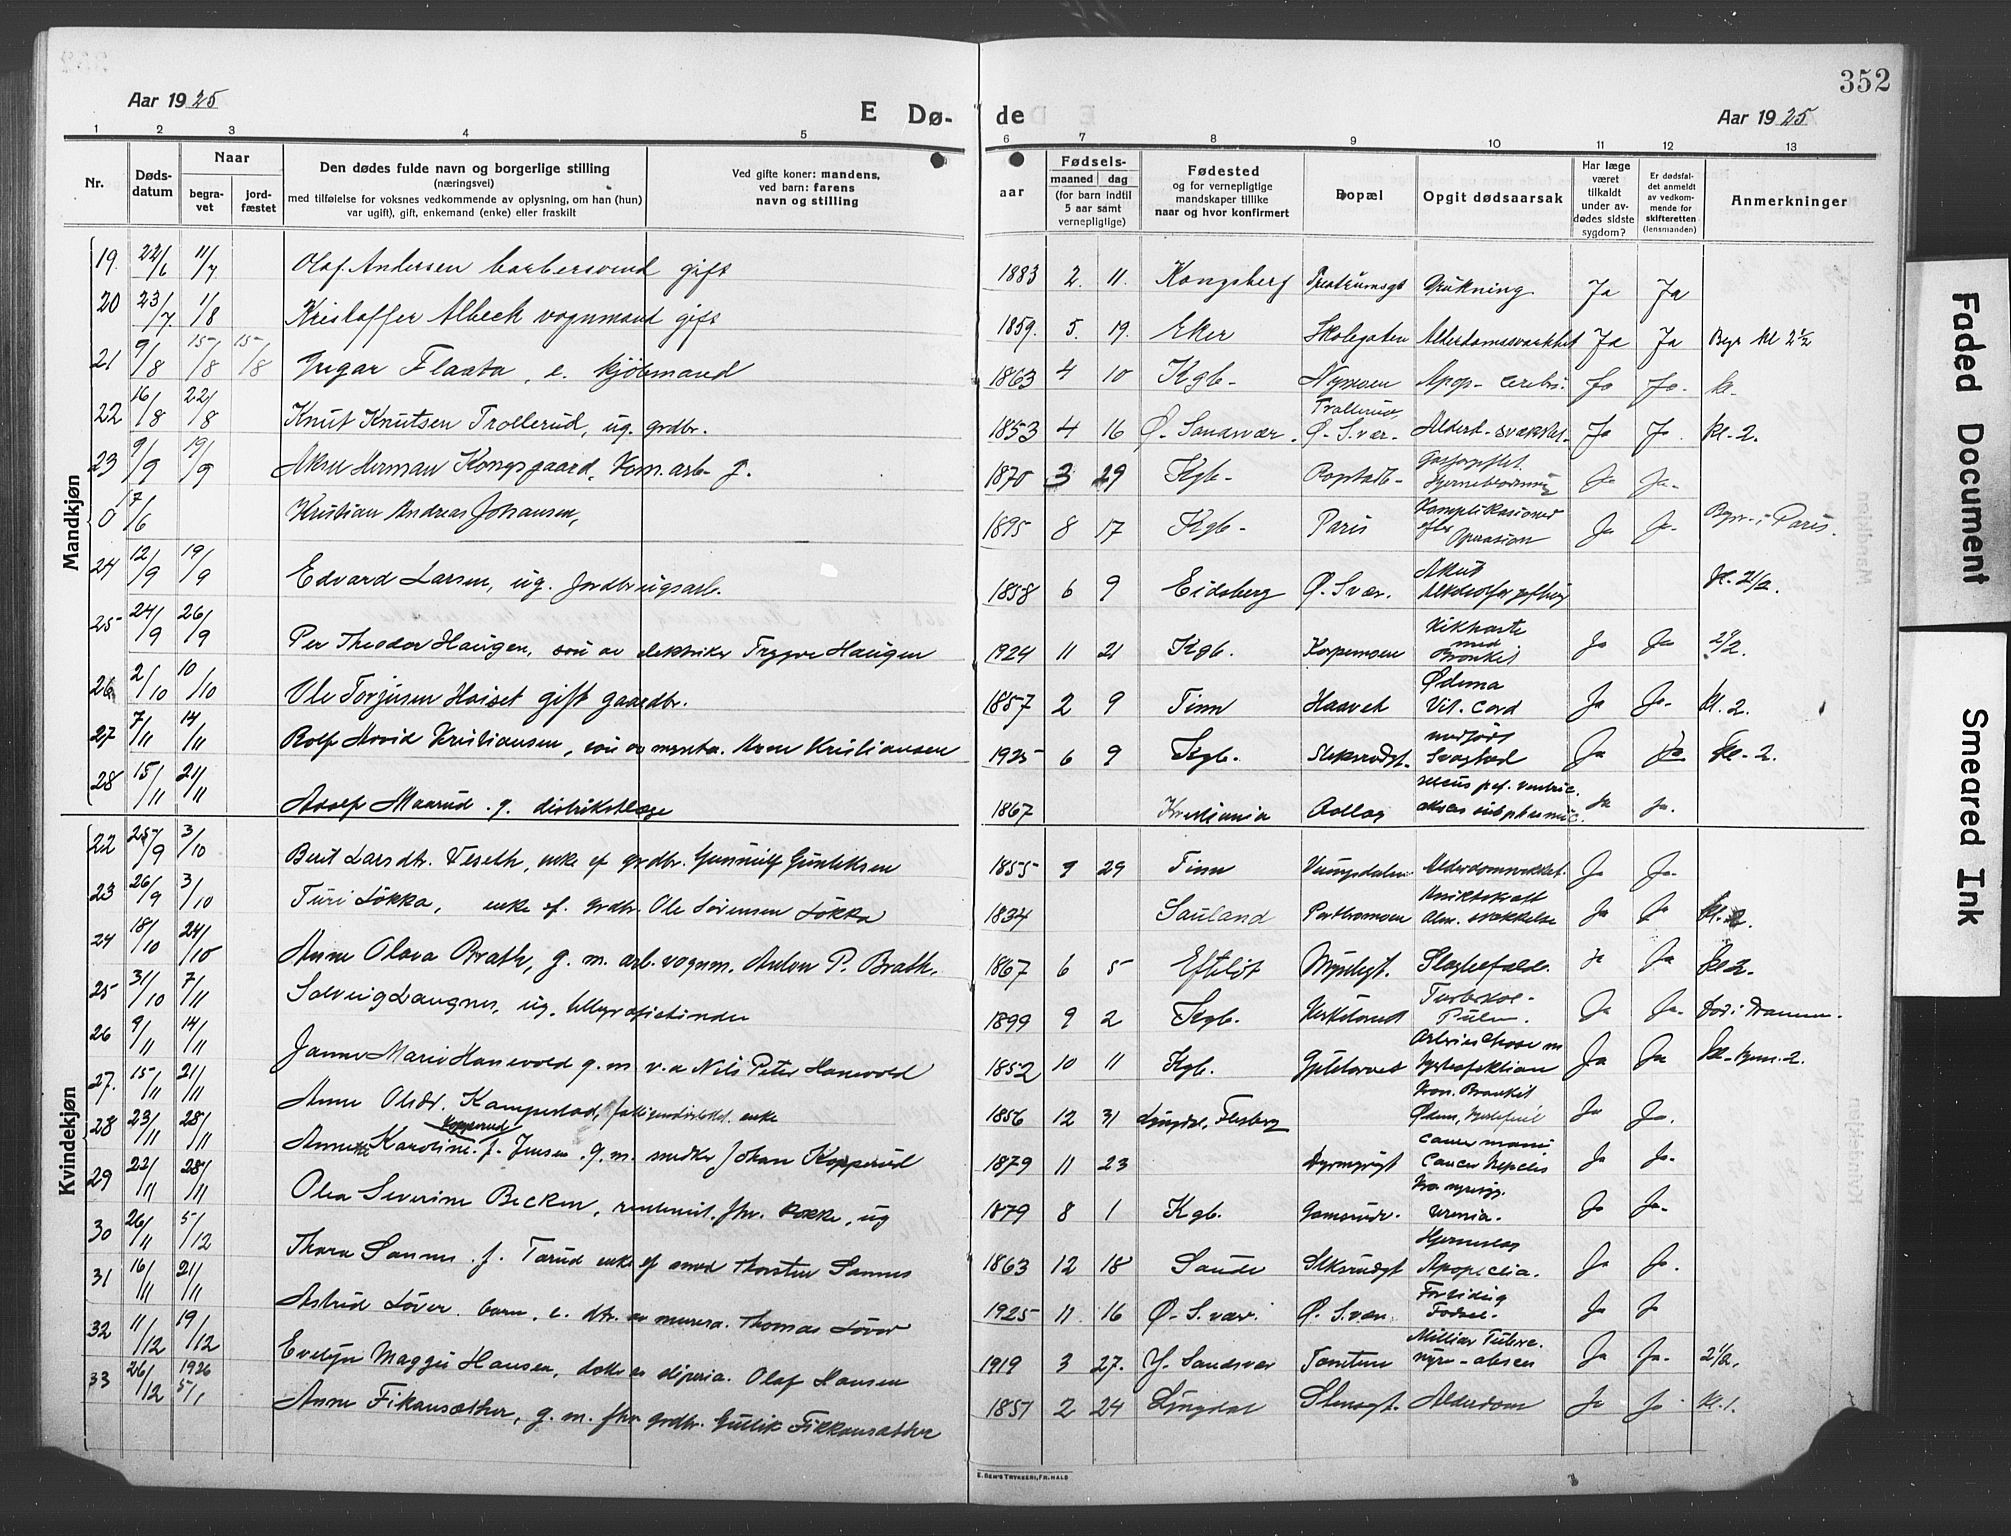 352
Aar 1925
E Dø- de
Aar 1925
1 2 3 4 5 6 7 8 9 10 11 12 13
Nr.
Døds-datum
Naar
begra-vet
jord-fæstet
Den dødes fulde navn og borgerlige stilling
(næringsvei)
med tilføielse for voksnes vedkommende av oplysning, om han (hun)
var ugift), gift, enkemand (enke) eller fraskilt
Ved gifte koner: mandens,
ved barn: farens
navn og stilling
aar
Fødsels-
maaned dag
(for barn indtil
5 aar samt
vernepligtige)
Fødested
og for vernepligtige
mandskaper tillike
naar og hvor konfirmert
Bopæl
Opgit dødsaarsak
Har læge
været
tilkaldt
under av-
dødes sidste
sygdom?
Er dødsfal-
det anmeldt
av vedkom-
mende for
skifteretten
(lensmanden)
Anmerkninger
Mandkjøn
19. 22/6 11/7 Olaf Andersen barbersvend gift 1883 2. 11. Kongsberg Drukning Ja Ja
20 23/7 1/8 Kristoffer Albeck vognmand gift 1859. 5. 19. Eker Skolegaten Alderdomssvækket Ja Ja Begr kl 2½
21 9/8 15/8 15/8 Flaata, e. kjøbmand 1863 4 10 Kgb- Nymoen Apop- cerebri. Ja Ja- kl.
22 16/8 22/8 Knut Knutsen Trollerud, ug. grdbr. 1853 4 16 Ø. Sandsvær. Trollerud, Ø. S.vær- Alderd- svækket- Ja Ja. kl. 2.
23 9/9 19/9 Herman Kongsgaard, kom. arb- g. 1870 3 29 Kgb- Gasforgiftet Hjerneblødning Ja Ja-
0 17/6 Kristian Andreas Johansen, 1895 8 17 Kgb- Paris Komplikasjoner efter Operasion Ja Ja- Begr- i Paris.
24 12/9 19/9 Edvard Larsen, ug. jordbrugsarb. 1858 6 9 Eidsberg Ø. Svær. Akut Alkoholforgiftning kl. 2½.
25 24/9 26/9 Per Theodor Haugen, søn av elektriker Trygve Haugen 1924 11 21 Kgb. Korpemoen Kikhoste med Bronkit Ja Ja 2½.
26 2/10 10/10 Ole Torjusen Haiset gift gaardbr. 1857 2 9 Tinn Haavet Ødema Vit. cord Ja Ja- kl. 2.
27 7/11 14/11 Rolf Arvid Kristiansen, søn av Kristiansen 1925 6 9 Kgb. medfødt Svaghed Ja Ja kl- 2.
28 15/11 21/11 Adolf Maarud. g. distriktslæge 1867 Kristiania Ja Ja.
Kvindekjøn
22 25/9 3/10 Berit Larsdtr. Veseth, enke ef grdbr. Gunnulf Gunleiksen 1855 9 29 Tinn Alderdomssvækket. Ja Ja-
23 26/9 3/10 Turi Løkka, enke ef. grdbr. Ole Sørensen Løkka 1834 Sauland Alm. svækkelse Ja Ja kl. 2.
24 18/10 24/10 Anne Olava Brath, g. m. arb. vognm. Anton P. Brath. 1867 6 5 Efteløt Myntgt. Slagtilfælde. Ja Ja kl 2.
25 31/10 7/11 Solveig Langnes, ug. telegrafistinde 1899 9 2 Kgb. Kirketorvet Tuberkol- Pulm. Ja Ja- Død i Drammen.
26 9/11 14/11 Marie Hanevold g. m v. a Nils Peter Hanevold 1852 10 11 Kgb. Gyldetorvet Hjerteafektion Ja Ja kl- 2.
27. 15/11 21/11 Anne Olsdr. Kamperhod, enke 1856 12 31 Lyngdal, Flesberg Kron. Bronkit Ødem, hjertefeil Ja Ja.
28 23/11 28/11 Anne Karoline Kopperud f. Jensen g. m. snedker Johan Kopperud 1879 11 23 Dyrmyrgt cancer mami Cancer hepatis Ja Ja-
29 22/11 28/11 Olea Severine Becken, fhv. kokke, ug 1879 8 1 Kgb. Gomsrudv. Uremia. Ja Ja-
30 26/11 5/12 Thora Sannes. f. Tarud enke ef smed Thorsten Sannes 1863 12 18 Saude Hjerneslag Apopleksia. Ja Ja.
31 16/11 21/11 Astrid Løver. barn, e. dtr. av murera. Thomas Løver 1925 11 16 Ø. S.vær. Ø. S.vær Fortidlig Fødsel. Ja Ja
32 11/12 19/12 Evelyn Maggie Hansen, dtr av Olaf Hansen 1919 3 27. Y. Sandsvær Milliær Tuberc. Ja Ja- 2½.
33 26/12 1926 5/1 Anne Fikansæther, g. m. fhv grdbr. Gullik Fikkansæther 1851 2 24 Lyngdal Stengt. Alderdom Ja Ja kl. 1.
E. SEM'S TRYKKERI, FR.HALD
Faded Document
Smeared Ink